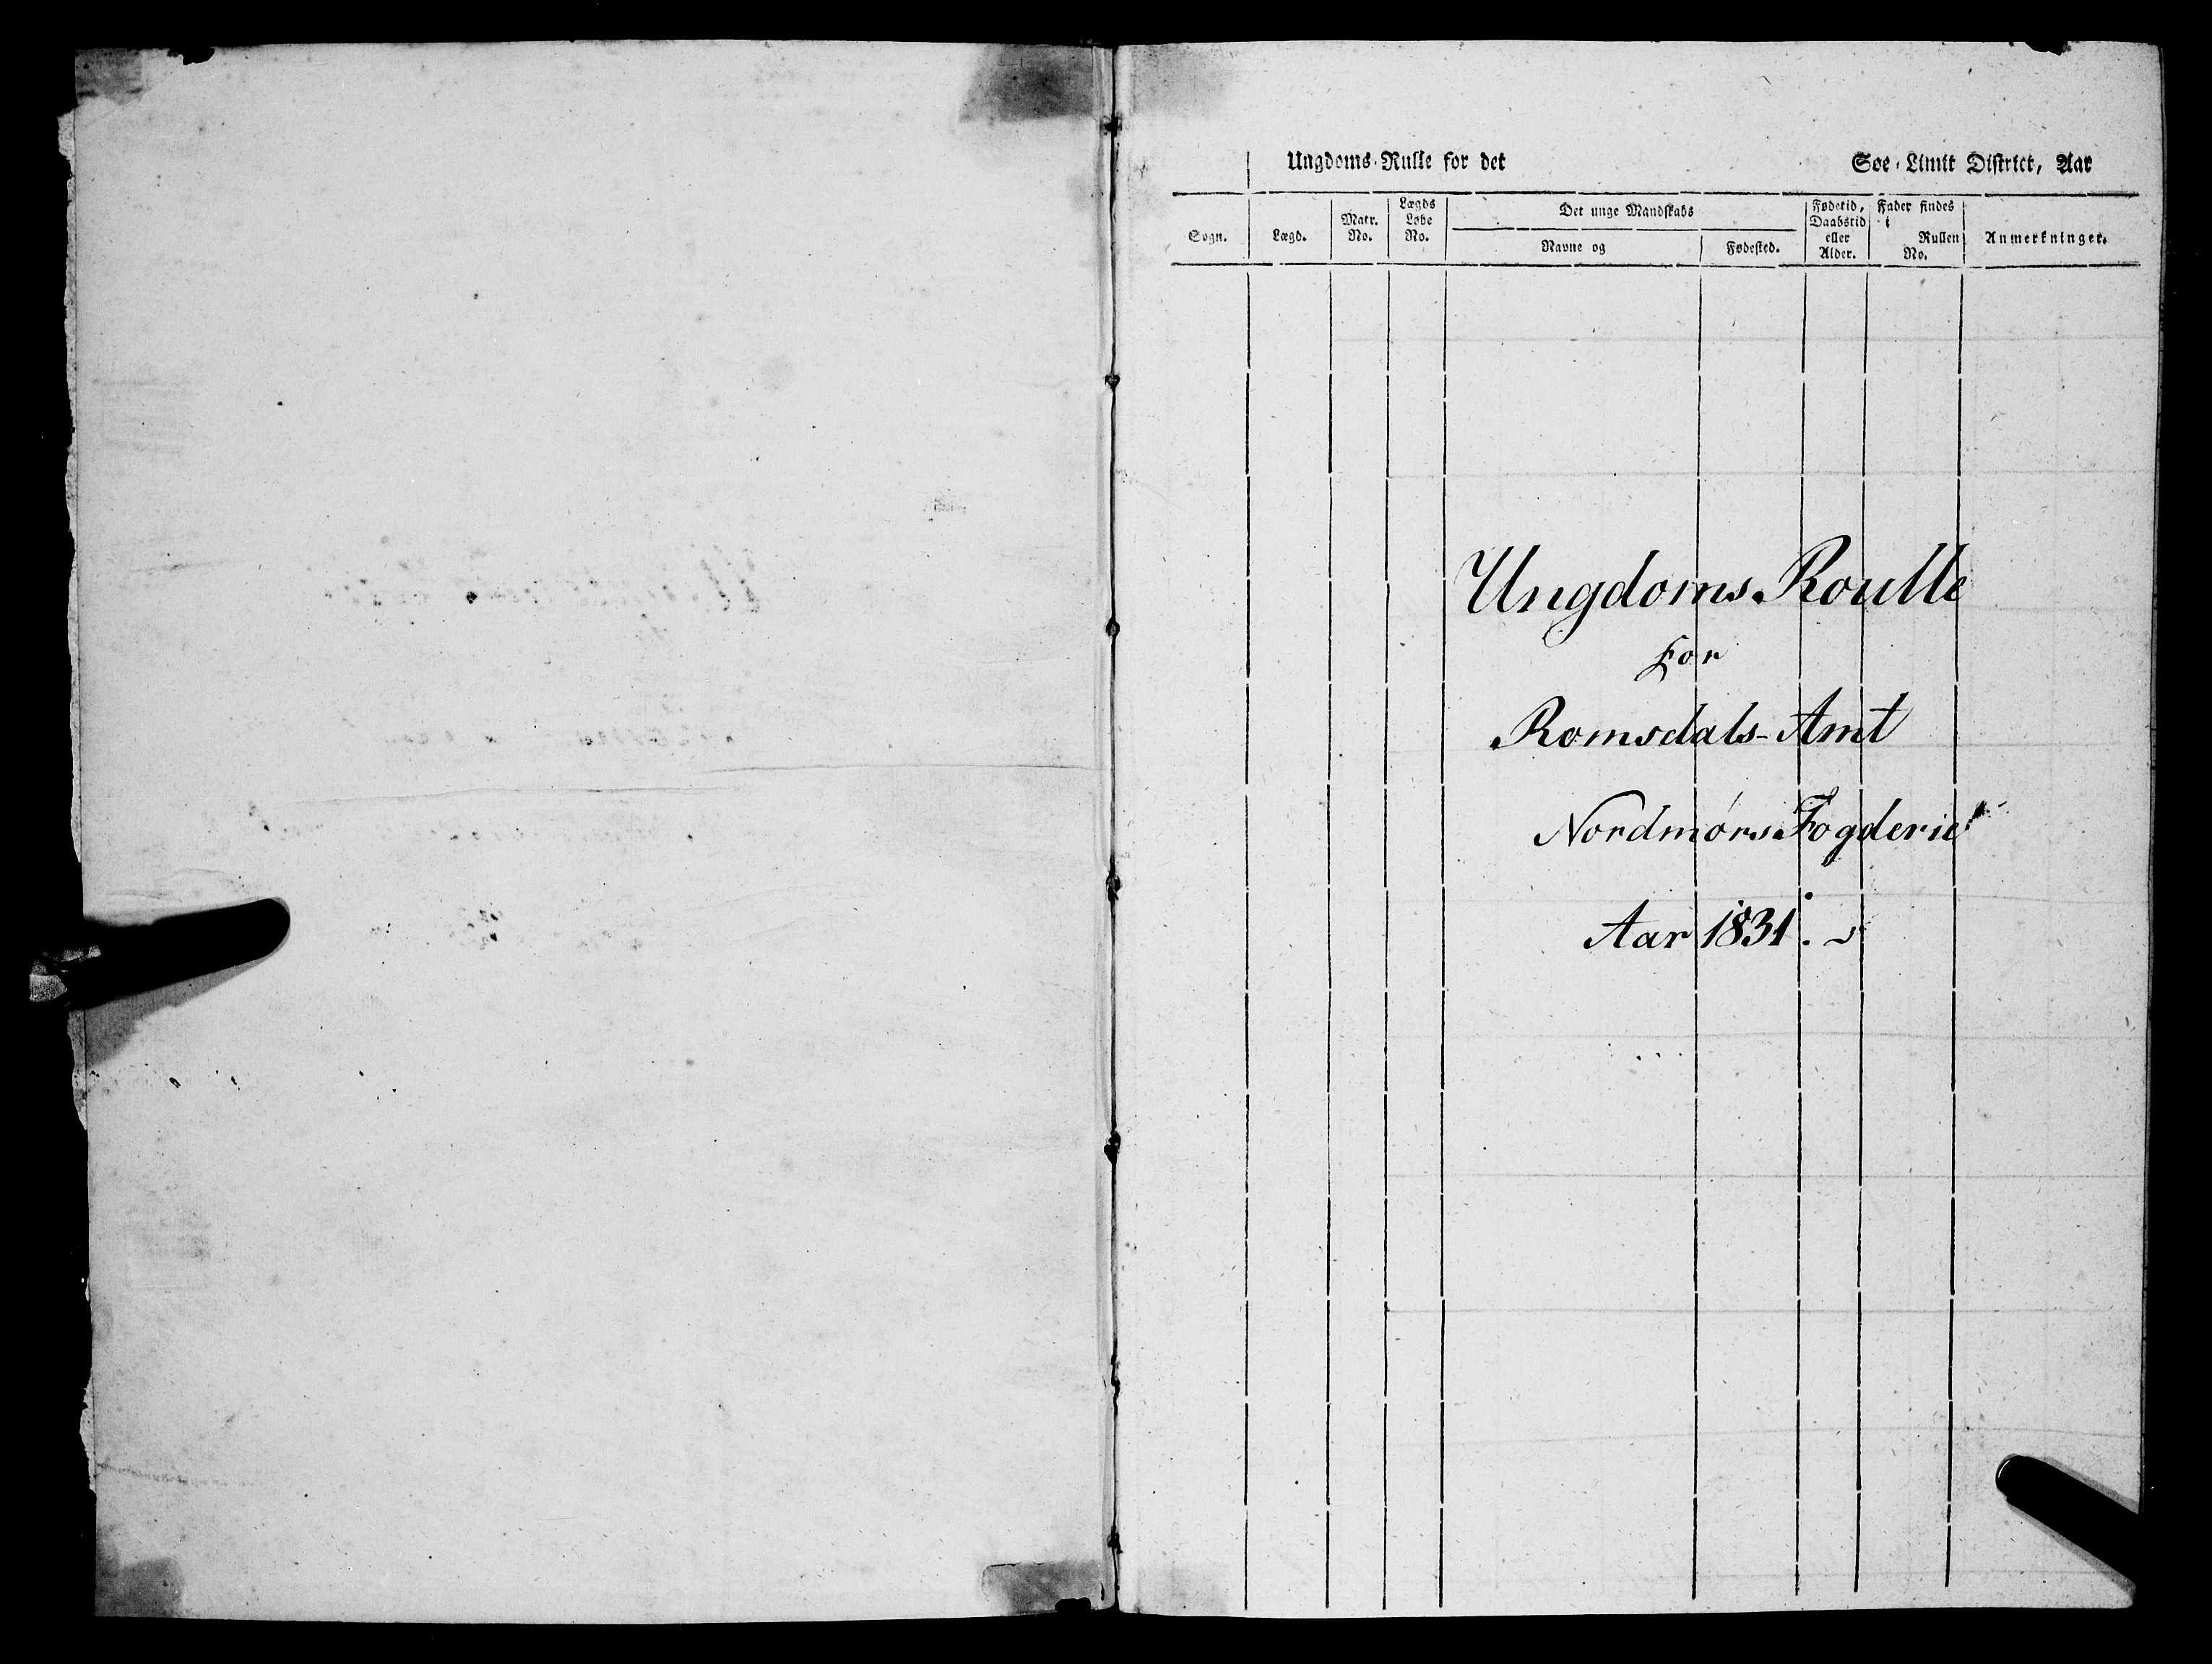 Ungdoms-Rulle for det Søe-Limit District, Aar
Sogn. Lægd. Matr. No. Lægds Løbe No. Det unge Mandskabs Navne og Fødested. Fødetid, Daabstid eller Alder. Fader findes i Rullen No. Anmerkninger.
Ungdoms-Roulle
for
Romsdals-Amt
Nordmørs Fogderie
Aar 1831.